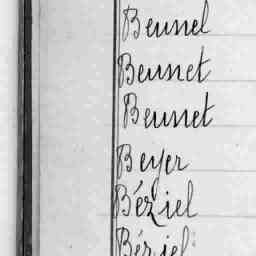 Beunel
Beunet
Beunet
Beyer
Béziel
Béziel